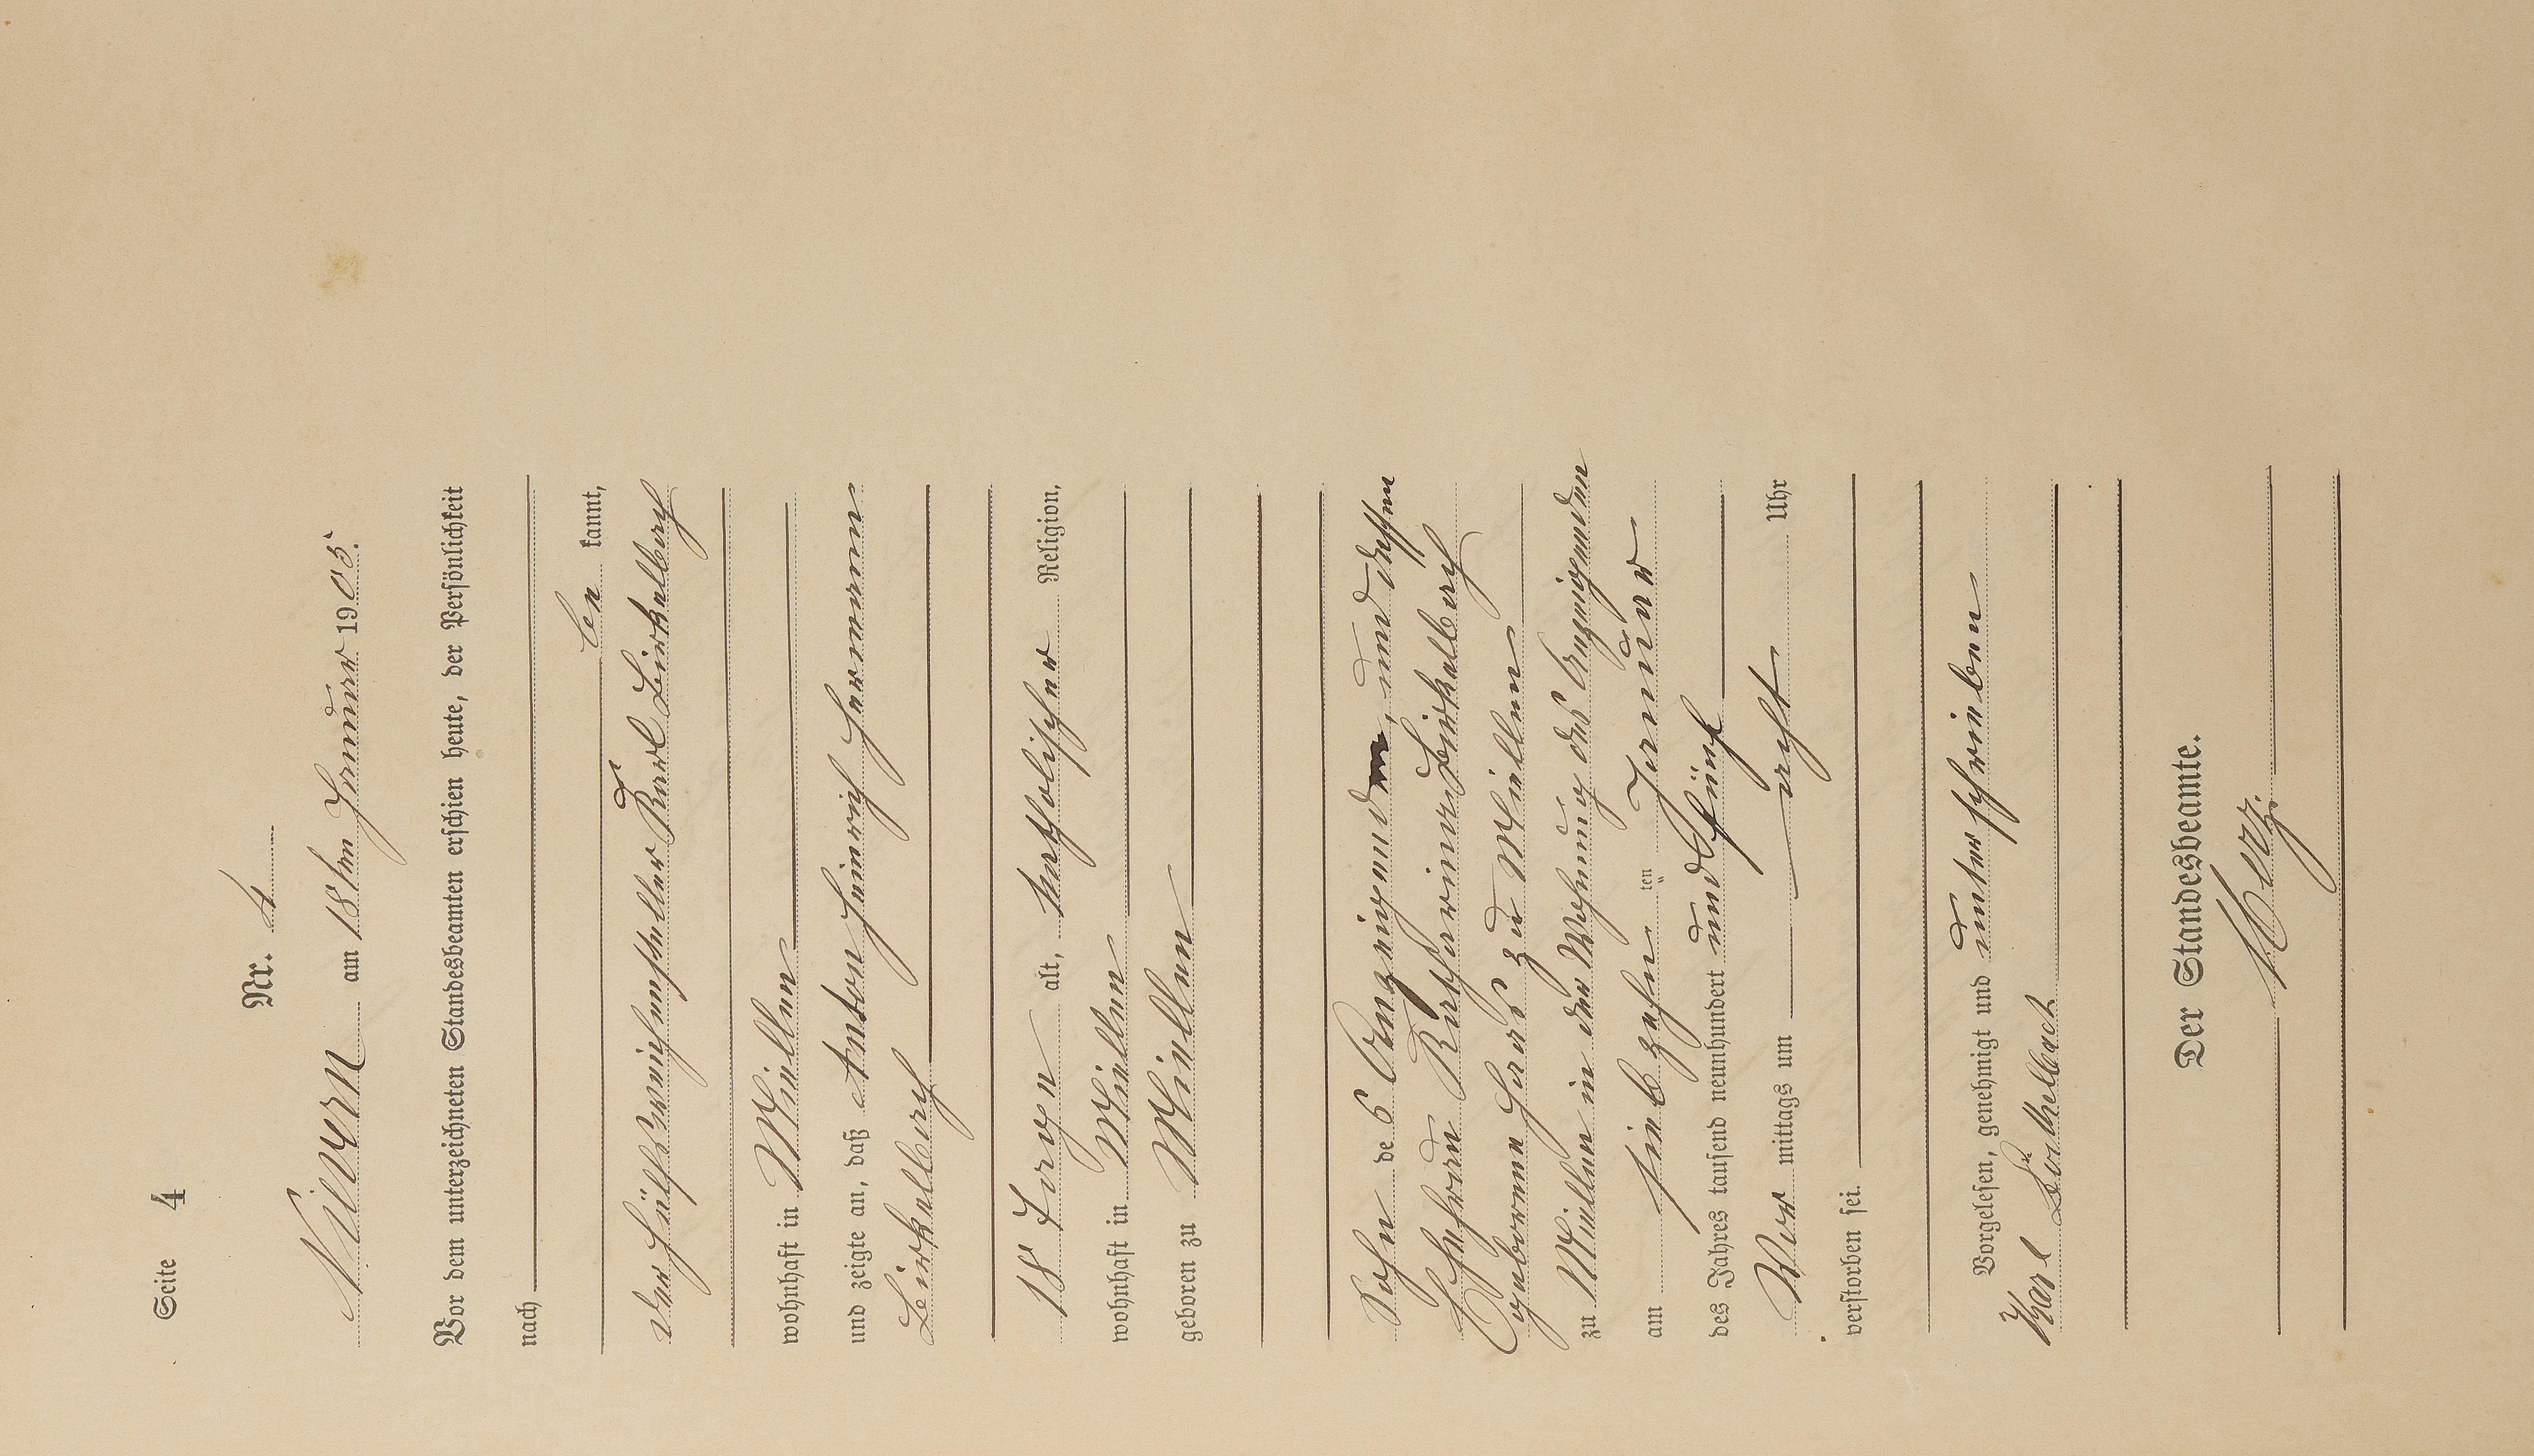 Seite 4
Nr. 4
Nievern am 18ten Januar 1905.
Vor dem unterzeichneten Standesbeamten erschien heute, der Persönlichkeit
nach
be kannt,
der Hülfsweichensteller Karl
wohnhaft in Miellen
und zeigte an, daß Anton Heinrich Hermann
18 Tage alt, katholischer Religion,
wohnhaft in Miellen
geboren zu Miellen
Sohn des Anzeigenden, und dessen
Ehefrau Katharina
geborene Haas zu Miellen
zu Miellen in der Wohnung des Anzeigenden
am siebzehn ten Januar
des Jahres tausend neunhundert und fünf
Vor mittags um acht Uhr
verstorben sei.
Vorgelesen, genehmigt und unterschrieben
Karl
Der Standesbeamte.
Herz.